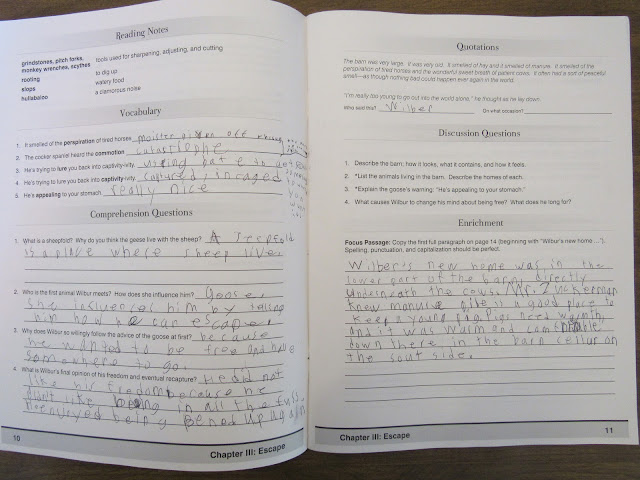 Reading Notes
grindstones, pitch forks,
monkey wrenches, scythes tools used for sharpening, adjusting, and cutting
rooting to dig up
slops watery food
hullabaloo a clamorous noise
Vocabulary
1. It smelled of the perspiration of tired horses moister given off
2. The cocker spaniel heard the commotion catastrophe
3. He's trying to lure you back into captivity-ivity. using bate to
4. He's trying to lure you back into captivity-ivity. captured, in caged
5. He's appealing to your stomach really nice
Comprehension Questions
1. What is a sheepfold? Why do you think the geese live with the sheep? A
is a place where sheep live.
2. Who is the first animal Wilbur meets? How does she influence him? Goose,
she influences him by telling
him how can escape.
3. Why does Wilbur so willingly follow the advice of the goose at first? because
he wanted to be free and have
somewhere to go.
4. What is Wilbur's final opinion of his freedom and eventual recapture? He did not
like his because he
didn't like being in all the fuss.
he enjoyed being pened up again
10
Chapter III: Escape
Quotations
The barn was very large. It was very old. It smelled of hay and it smelled of manure. It smelled of the
perspiration of tired horses and the wonderful sweet breath of patient cows. It often had a sort of peaceful
smell—as though nothing bad could happen ever again in the world.
"I'm really too young to go out into the world alone," he thought as he lay down.
Who said this? Wilber On what occasion?
Discussion Questions
1. Describe the barn; how it looks, what it contains, and how it feels.
2. *List the animals living in the barn. Describe the homes of each.
3. *Explain the goose's warning: "He's appealing to your stomach."
4. What causes Wilbur to change his mind about being free? What does he long for?
Enrichment
Focus Passage: Copy the first full paragraph on page 14 (beginning with "Wilbur's new home ...").
Spelling, punctuation, and capitalization should be perfect.
Wilber's new home was in the
lower part of the barn, directly
underneath the cows. Mr. Zuckerman
knew manure pile is a good place to
keep a young pig. Pigs need warmth,
and it was warm and comfortable
down there in the barn cellur on
the sout side.
Chapter III: Escape
11